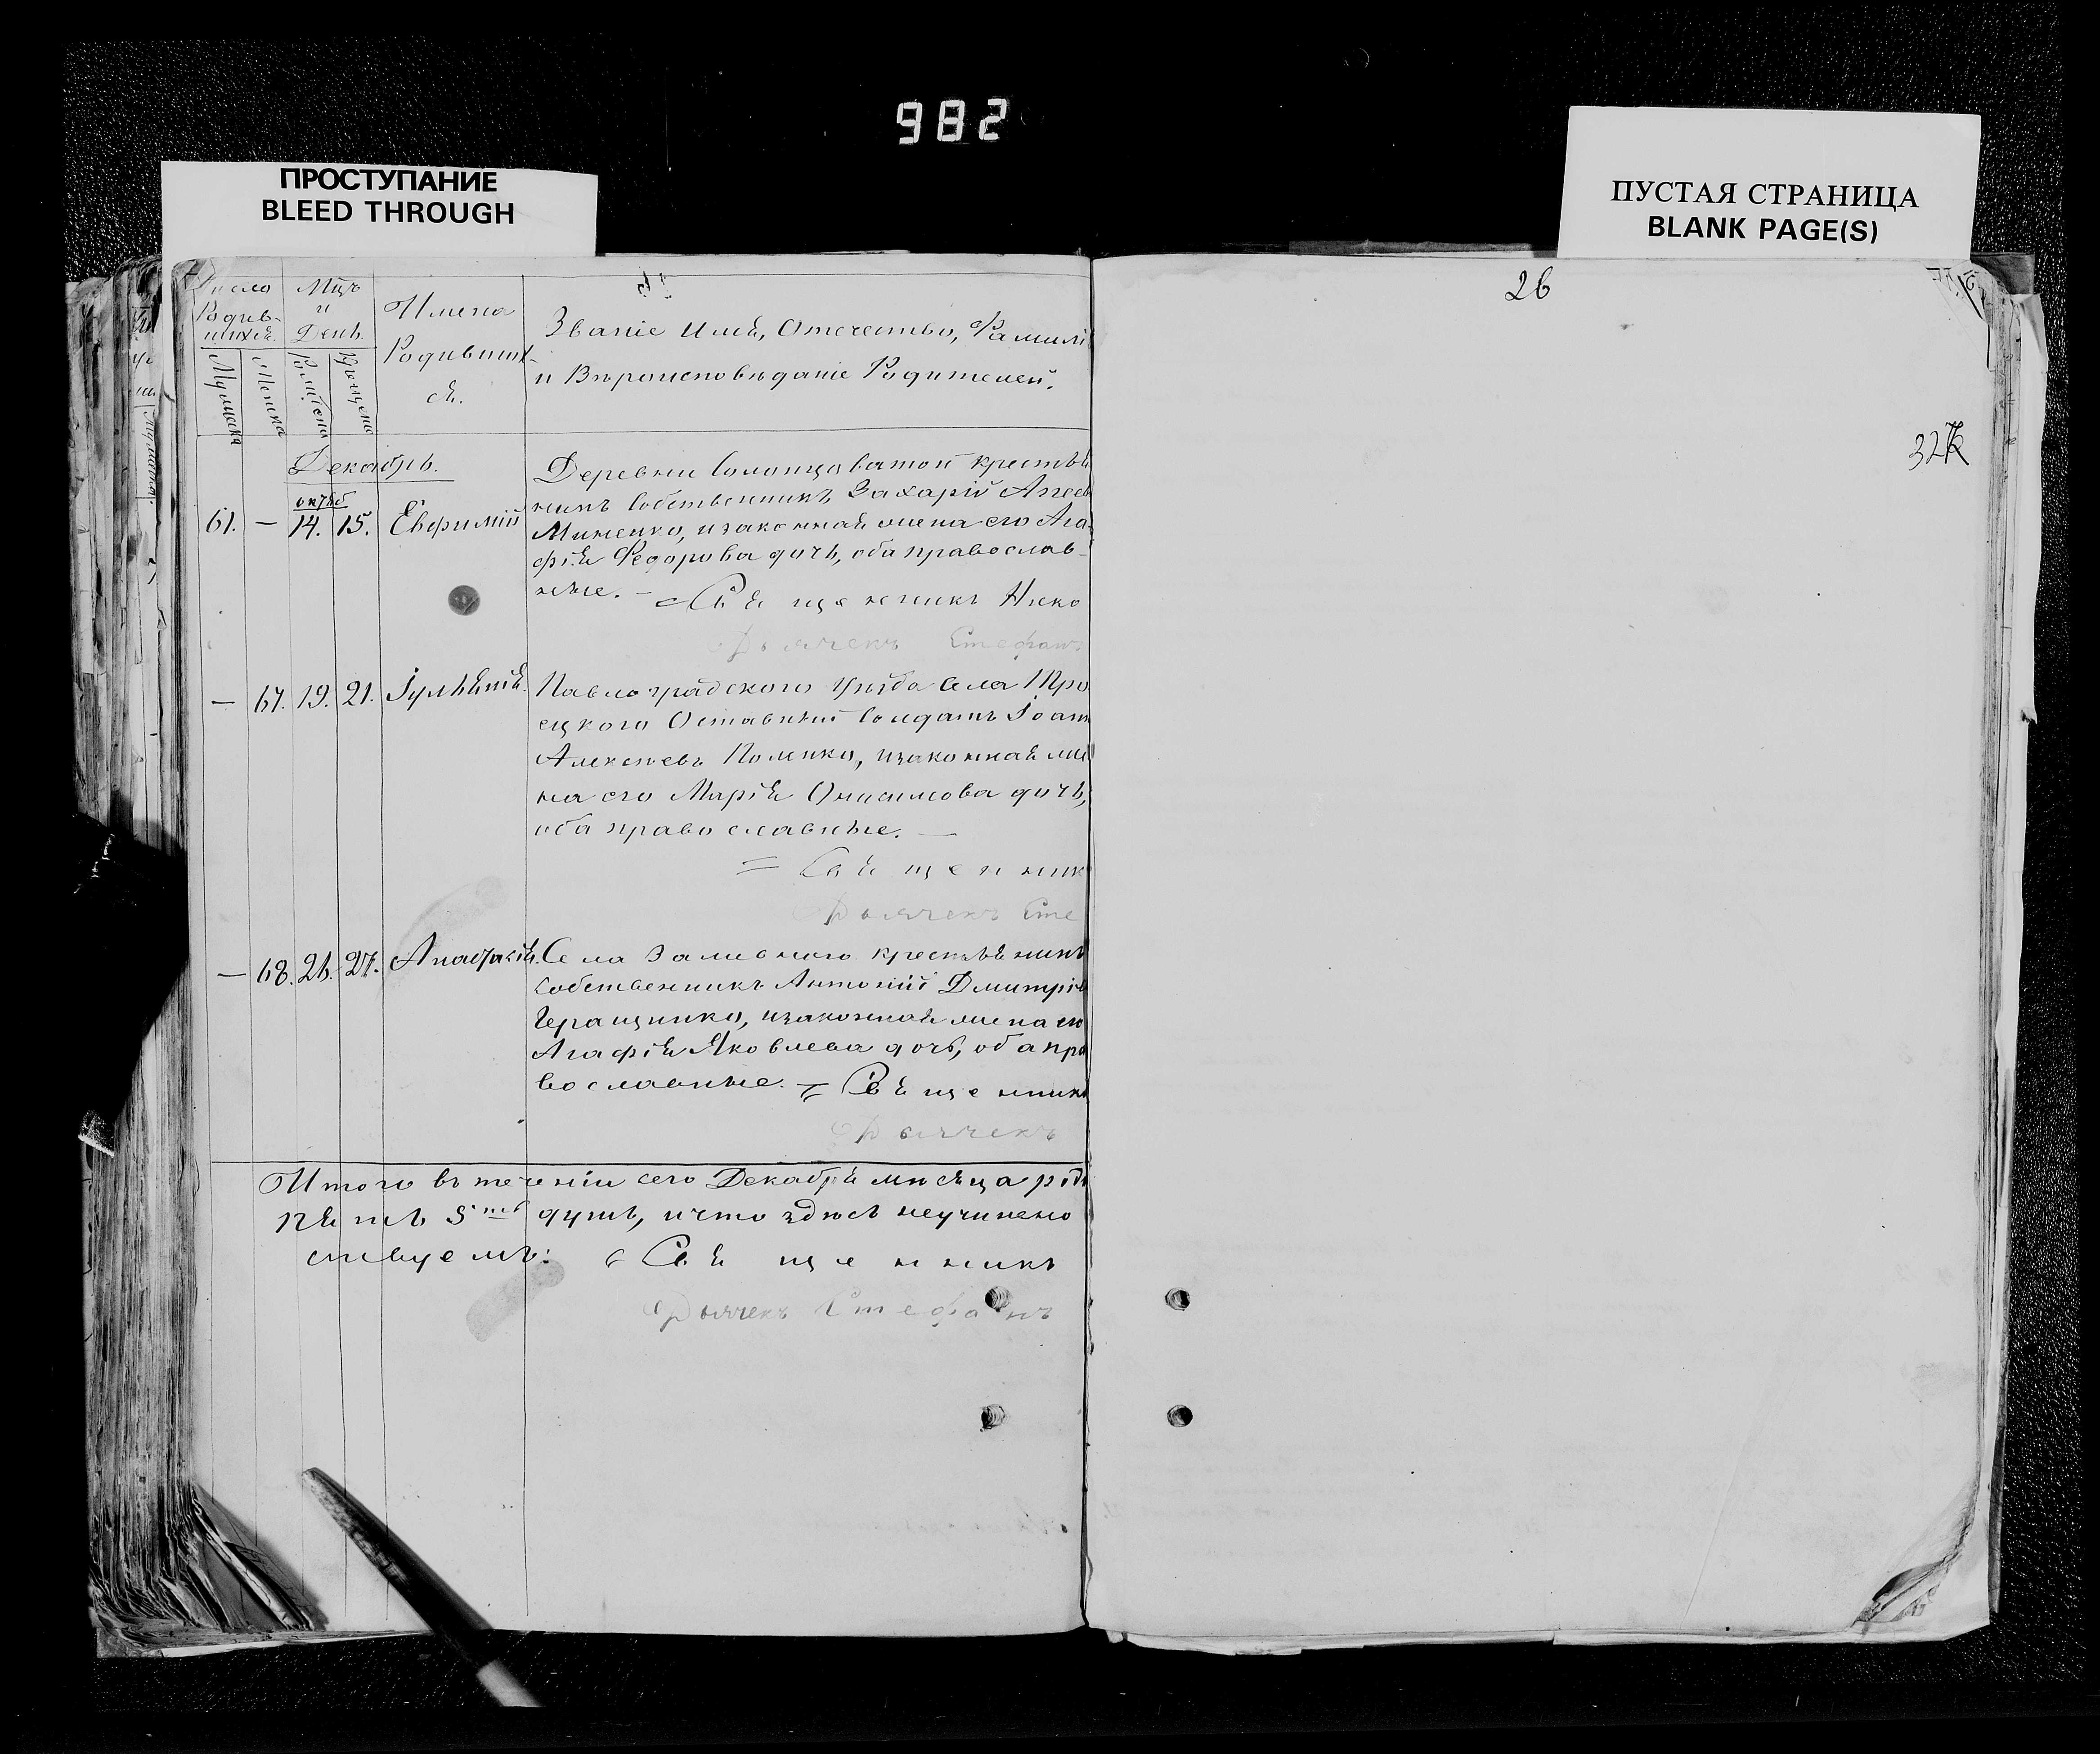 982
ПРОСТУПАНИЕ
BLEED THROUGH
ПУСТАЯ СТРАНИЦА
BLANK PAGE(S)
26
327
Число Родив-шихся.
Мужеска
Женска
Мцъ и День.
Рожденія
Крещенія
Имена
Родивших-
ся.
Званіе Имя, Отечество, Фамилі
и Вѣроисповѣданіе Родителей.
Декабрь.
октяб
61. — 14. 15. Евфимій
Деревни Солонцоватой крестья
нинъ Собственникъ Захарій Агеев
Миненко, и законная жена его Ага-
фія Федорова дочь, оба православ-
ные. — Священникъ Нико
Дьячекъ Стефанъ
— 67. 19. 21. Іуліянія.
Павлоградского Уѣзда Села Тро
ецкого Отставный Солдатъ Іоанн
Алексѣевъ Поленко, и законная же
на его Марія Онисимова дочь,
оба православные. —
= Священник
Дьячекъ Сте
— 68. 26. 27. Анастасія.
Села Залиснаго крестьянинъ
Собственникъ Антоній Дмитріев
Геращенко, и законная жена его
Агафія Яковлева дочь, оба пра
вославные. = Священник
Дьячекъ
Итого въ теченіи сего Декабря мѣсяца род
пять 5ть душъ, и что здѣсь неучинено
ствуемъ: Священникъ
Дьячекъ Стефанъ